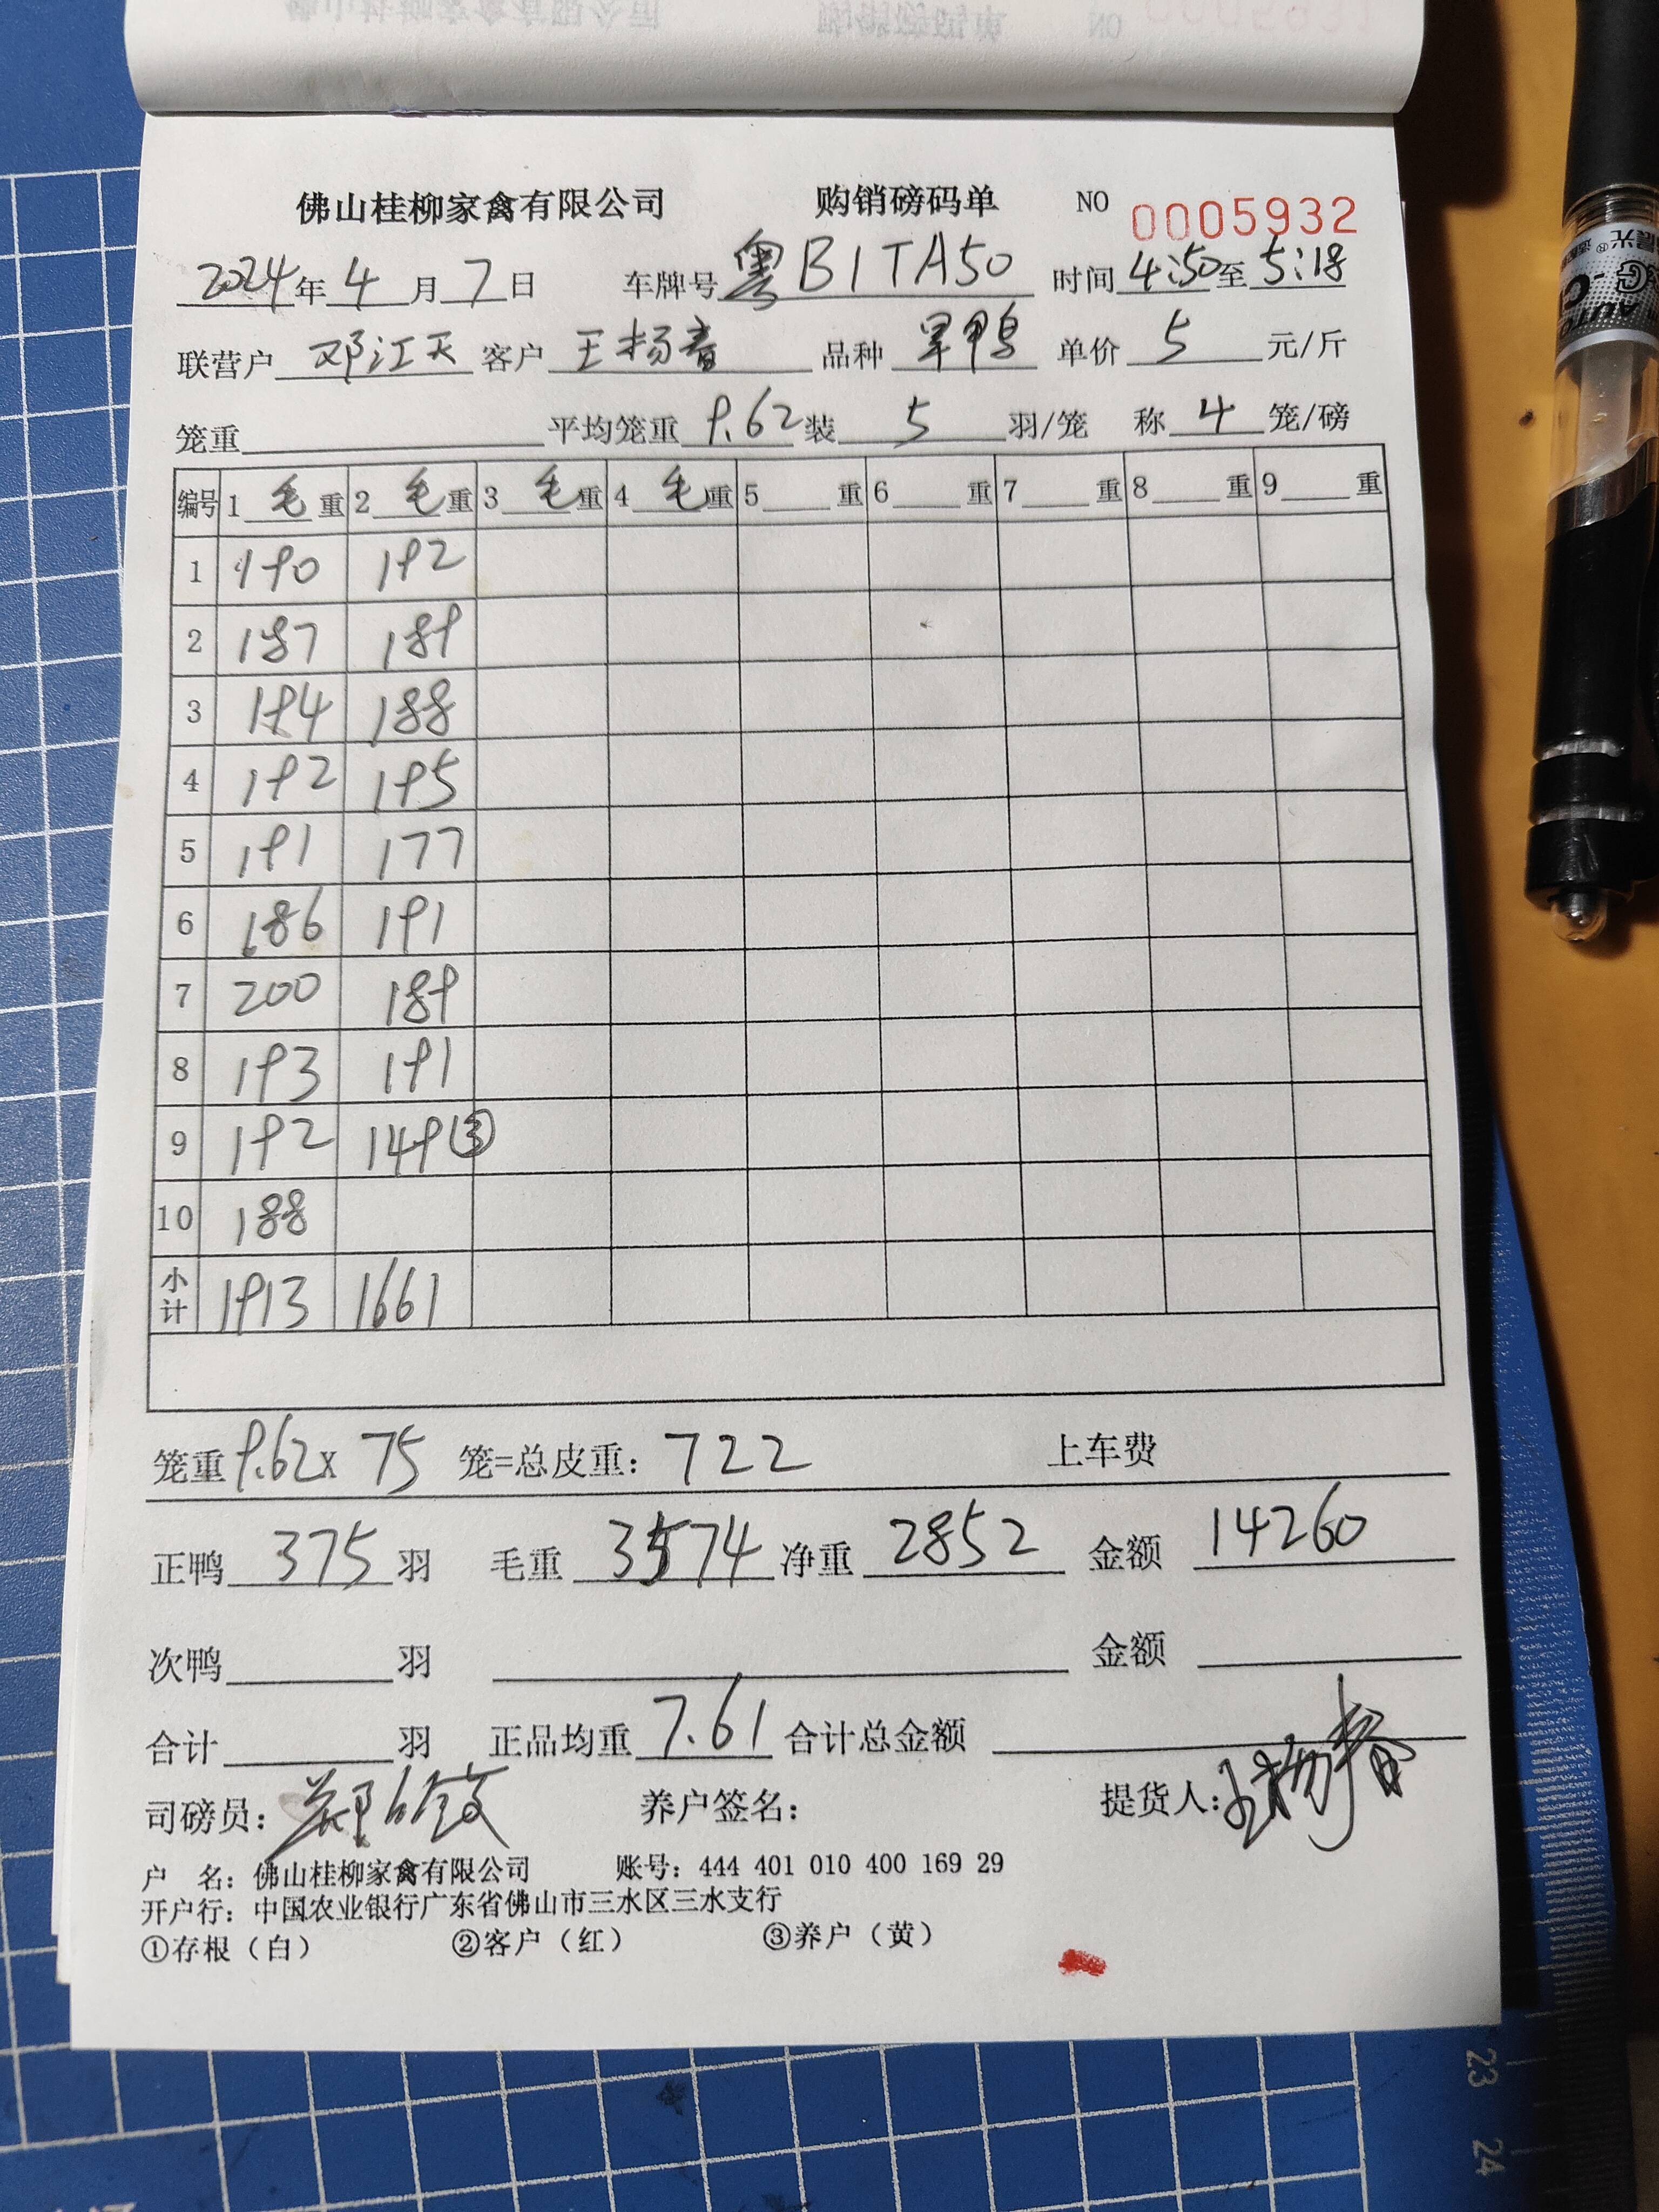 佛山桂柳家禽有限公司 购销磅码单 NO 0005932
2024年4月7日 车牌号 粤B1TA50 时间 4:50至5:18
联营户 邓江天 客户 王扬春 品种 旱鸭 单价 5 元/斤
笼重 平均笼重 9.62 装 5 羽/笼 称 4 笼/磅
编号 1 毛 重 2 毛 重 3 毛 重 4 毛 重 5 重 6 重 7 重 8 重 9 重
1 190 192
2 187 189
3 194 188
4 192 195
5 191 177
6 186 191
7 200 189
8 193 191
9 192 149③
10 188
小计 1913 1661
笼重 9.62x 75 笼=总皮重: 722 上车费
正鸭 375 羽 毛重 3574 净重 2852 金额 14260
次鸭 羽 金额
合计 羽 正品均重 7.61 合计总金额
司磅员: 养户签名: 提货人: 王扬春
户 名: 佛山桂柳家禽有限公司 账号: 444 401 010 400 169 29
开户行: 中国农业银行广东省佛山市三水区三水支行
①存根（白） ②客户（红） ③养户（黄）
23
24